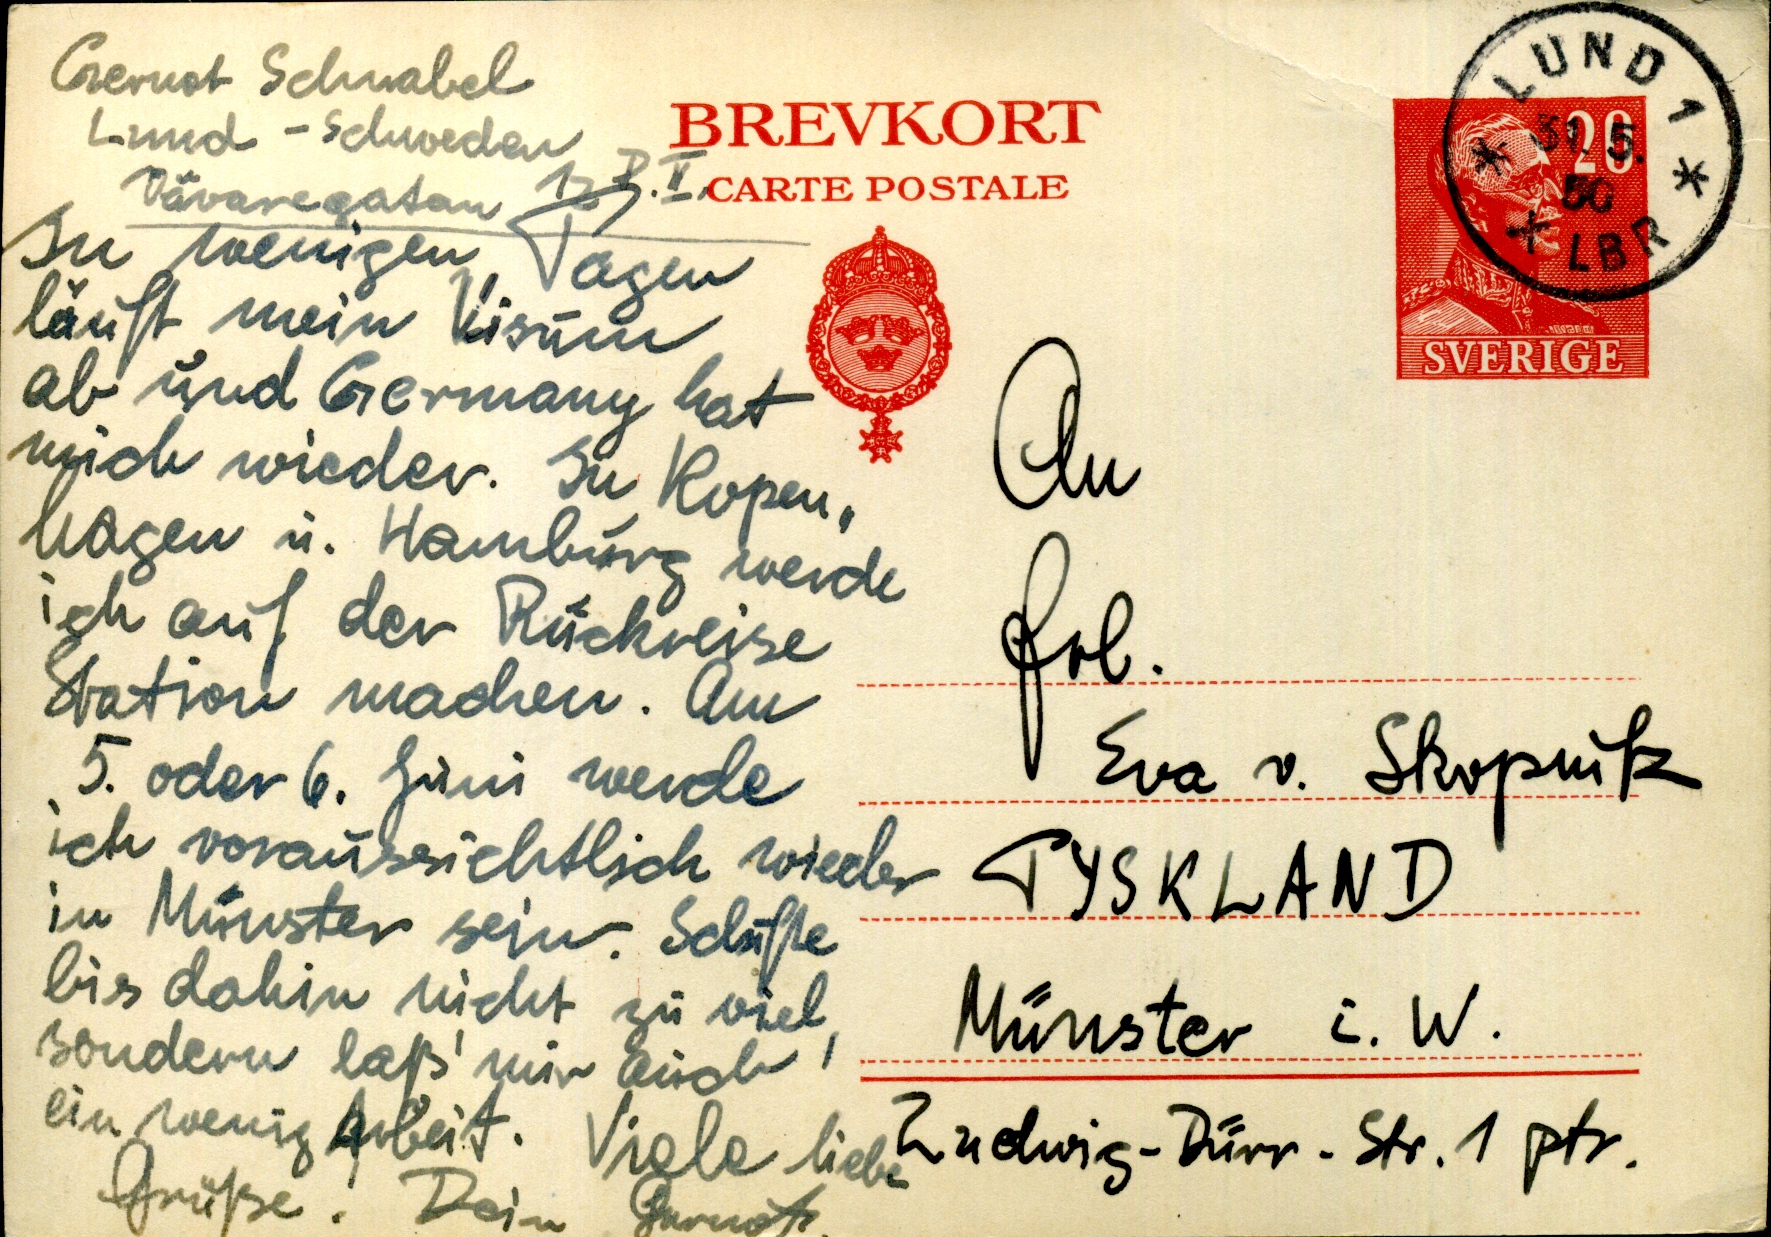 Gernot Schnabel
Lund - Schweden
Vävaregatan
In wenigen Tagen
läuft mein Visum
ab und Germany hat
mich wieder. In Kopen„
hagen u. Hamburg werde
ich auf der Rückreise
Station machen. Am
5. oder 6. Juni werde
ich voraussichtlich wieder
in Münster sein. Schufte
bis dahin nicht zu viel,
sondern laß' mir auch
ein wenig Arbeit. Viele liebe
Grüße! Dein Gernot.
BREVKORT
CARTE POSTALE
LUND 1
31. 5.
50
LBR
20
SVERIGE
An
Frl.
Eva v. Skopnik
TYSKLAND
Münster i. W.
Ludwig-Dürr-Str. 1 ptr.